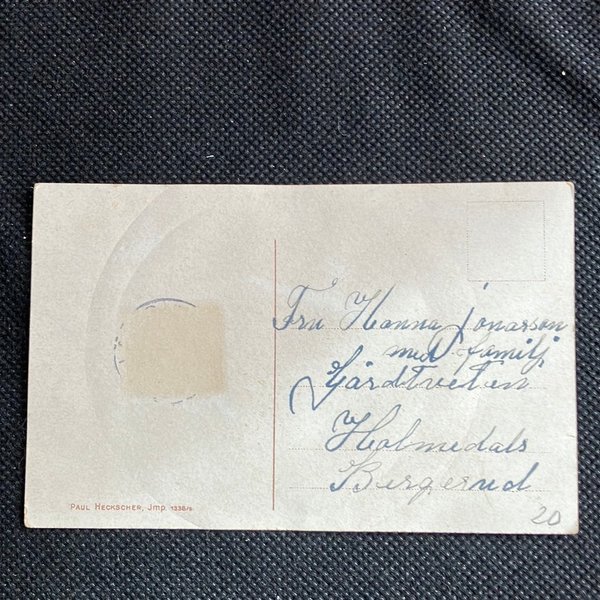 Fru Hanna Jonasson
med familj
Gårdtveten
Holmedals
Bergerud
20
PAUL HECKSCHER, Jmp. 1336/5